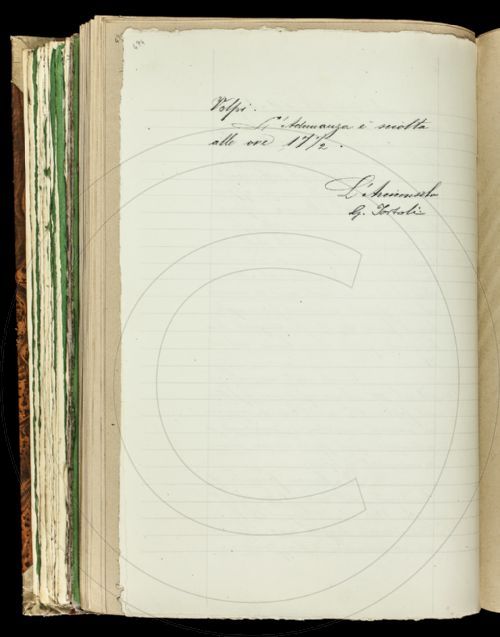 Volpi.
L'Adunanza è sciolta
alle ore 17 1/2.
L'Arciconsolo
G. Tortoli